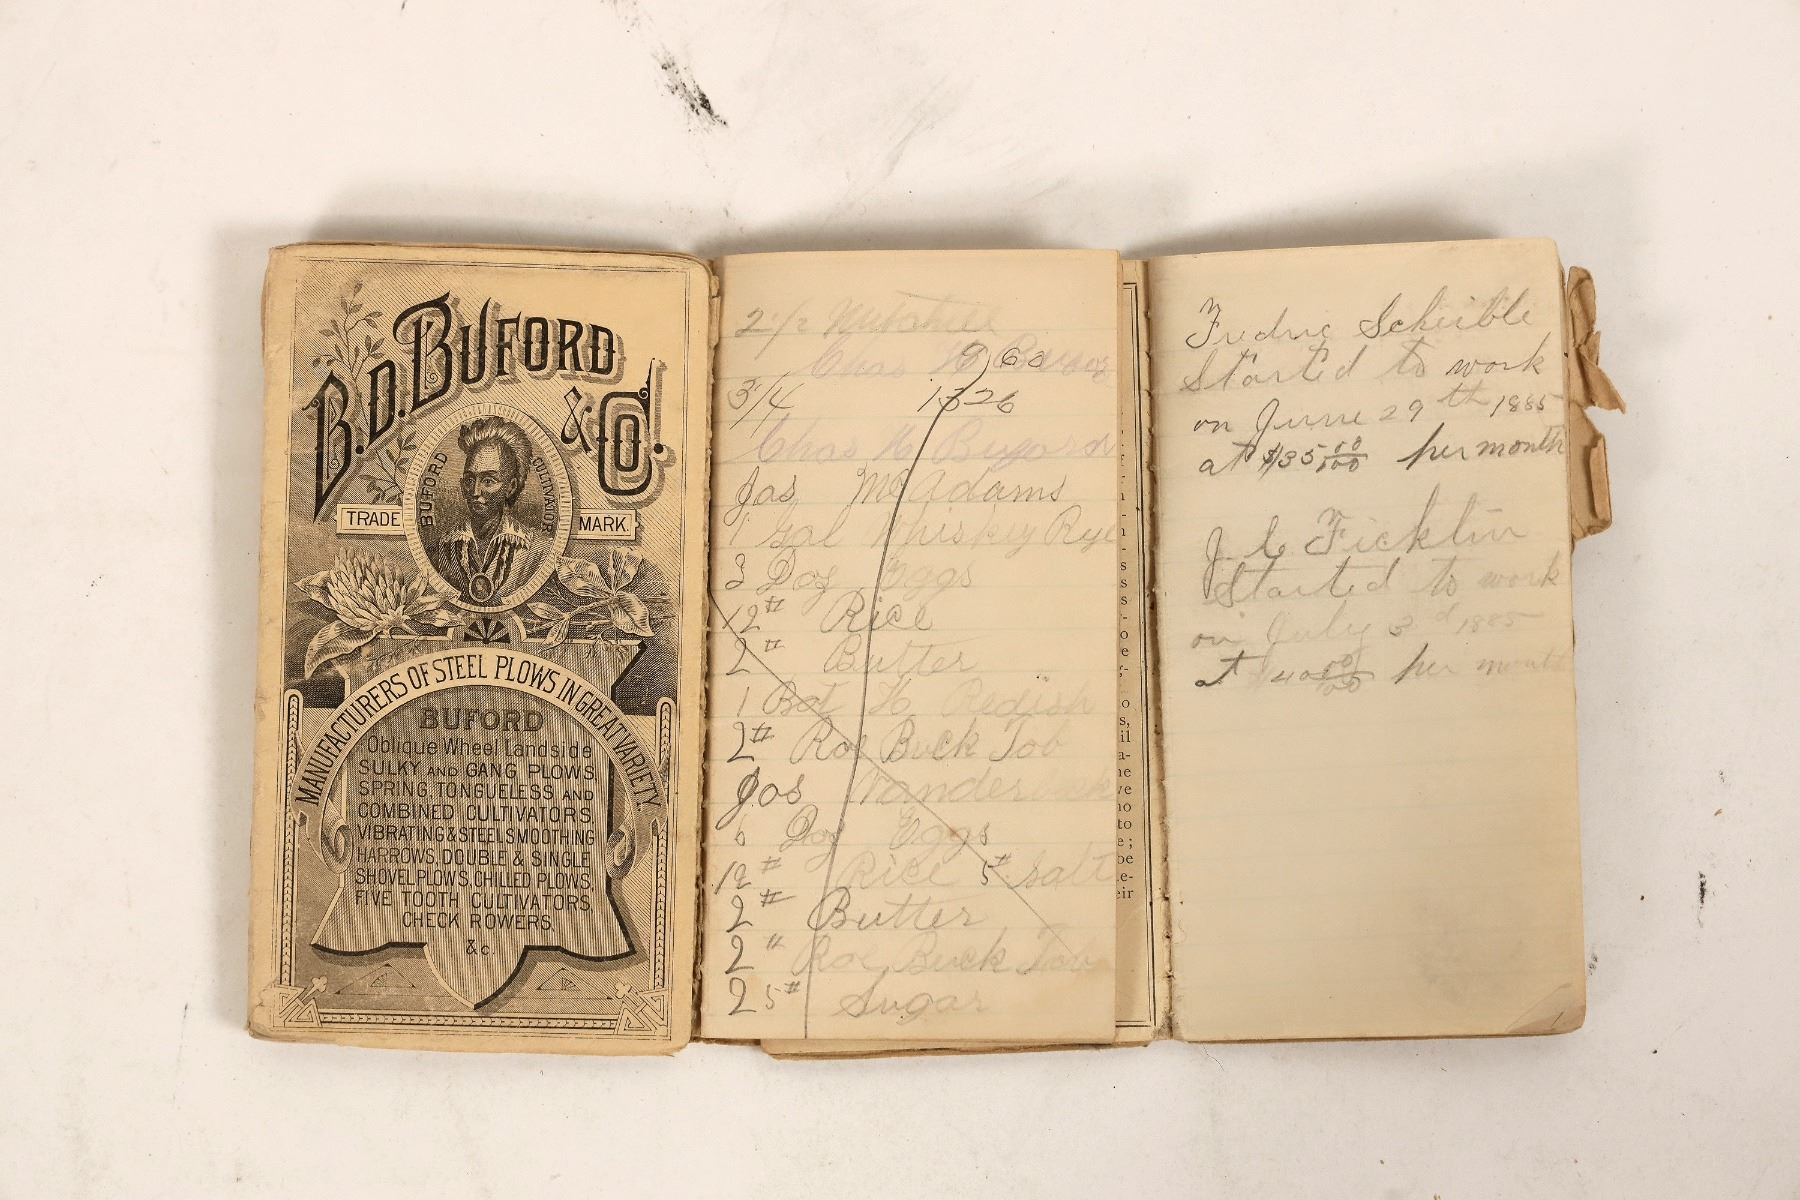 B.D. BUFORD
& Co.
BUFORD CULTIVATOR
TRADE MARK.
MANUFACTURERS OF STEEL PLOWS IN GREAT VARIETY.
BUFORD
Oblique Wheel Landside
SULKY AND GANG PLOWS
SPRING, TONGUELESS AND
COMBINED CULTIVATORS,
VIBRATING & STEEL SMOOTHING
HARROWS, DOUBLE & SINGLE
SHOVEL PLOWS, CHILLED PLOWS,
FIVE TOOTH CULTIVATORS,
CHECK ROWERS,
&c.
2 1/2
Chas H
960
3/4 1326
Chas H
Jas McAdams
1 Gal Whiskey Rye
3 Doz Eggs
12# Rice
2# Butter
1 Bot H Redish
2# Roe Buck Tob
Jos
6 Doz Eggs
12# Rice 5# Salt
2# Butter
2# Roe Buck Tob
25# Sugar
Fredric Scheible
Started to work
on June 29th 1885
at $35 00/100 per month
J. C. Ficklin
Started to work
on July 3d 1885
at $40 00/100 per month